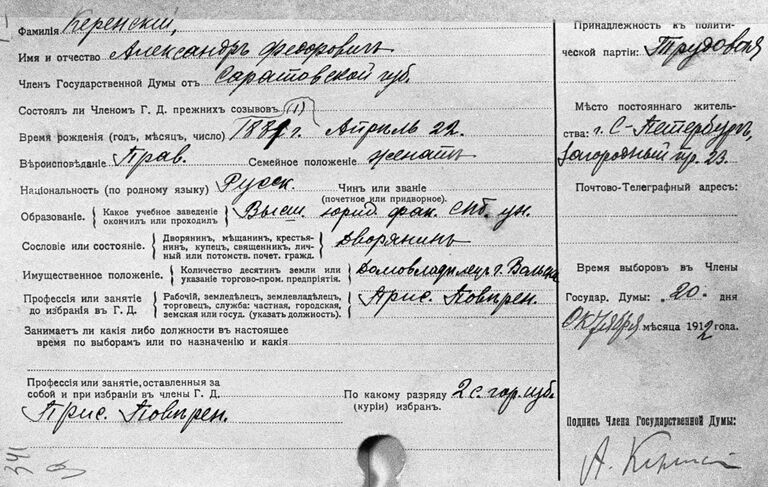 Фамилія Керенскій,
Имя и отчество Александръ Федоровичъ
Членъ Государственной Думы отъ Саратовской губ.
Состоялъ ли Членомъ Г. Д. прежнихъ созывовъ
Время рожденія (годъ, мѣсяцъ, число) 1881 г. Апрѣль 22.
Вѣроисповѣданіе Прав. Семейное положеніе женатъ
Національность (по родному языку) Русск. Чинъ или званіе
(почетное или придворное).
Образованіе. Какое учебное заведеніе
окончилъ или проходилъ
Высш. юрид. фак. Спб. ун.
Сословіе или состояніе. Дворянинъ, мѣщанинъ, крестья-
нинъ, купецъ, священникъ, лич-
ный или потомств. почет. гражд.
Дворянинъ
Имущественное положеніе. Количество десятинъ земли или
указаніе торгово-пром. предпріятія.
Домовладѣлецъ г. Вольска
Профессія или занятіе
до избранія въ Г. Д.
Рабочій, земледѣлецъ, землевладѣлецъ,
торговецъ, служба: частная, городская,
земская или госуд. (указать должность).
Прис. Повѣрен.
Занимаетъ ли какія либо должности въ настоящее
время по выборамъ или по назначенію и какія
Профессія или занятіе, оставленныя за
собой и при избраніи въ члены Г. Д.
Прис. Повѣрен.
По какому разряду 2 с. гор. изб.
(куріи) избранъ.
341
Принадлежность къ полити-
ческой партіи: Трудовая
Мѣсто постояннаго житель-
ства: г. С-Петербургъ,
Загородный пр. 23.
Почтово-Телеграфный адресъ:
Время выборовъ въ Члены
Государ. Думы: „20„ дня
Октября мѣсяца 1912 года.
Подпись Члена Государственной Думы:
А. Керенскій